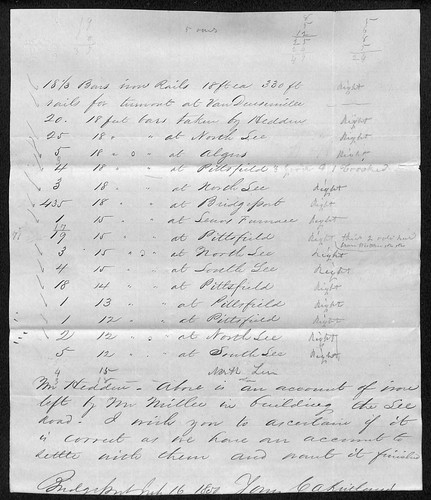 5 cars
18 1/3 Bars iron Rails 18 ft ea 330 ft Right
rails for turnout at Van Deusenville
20. 18 feet bars taken by Hedden Right
25 18 " " at North Lee Right
5 18 " " at Right
4 18 " " at Pittsfield
3 18 " at North Lee Right
435 18 " at Bridgeport Right
1 15 " at Furnace Right
19 15 " at Pittsfield Right
3 15 " " at North Lee Right
4 15 " at South Lee Right
18 14 " at Pittsfield Right
1 13 " at Pittsfield Right
1 12 " at Pittsfield Right
2 12 " at North Lee Right
5 12 " at South Lee Right
4 15 North Lee
Mr Hedden - Above is an account of iron
left by Mr Miller in building the Lee
road. I wish you to ascertain if it
is correct as we have an account to
settle with them and want it finished
Bridgeport 16